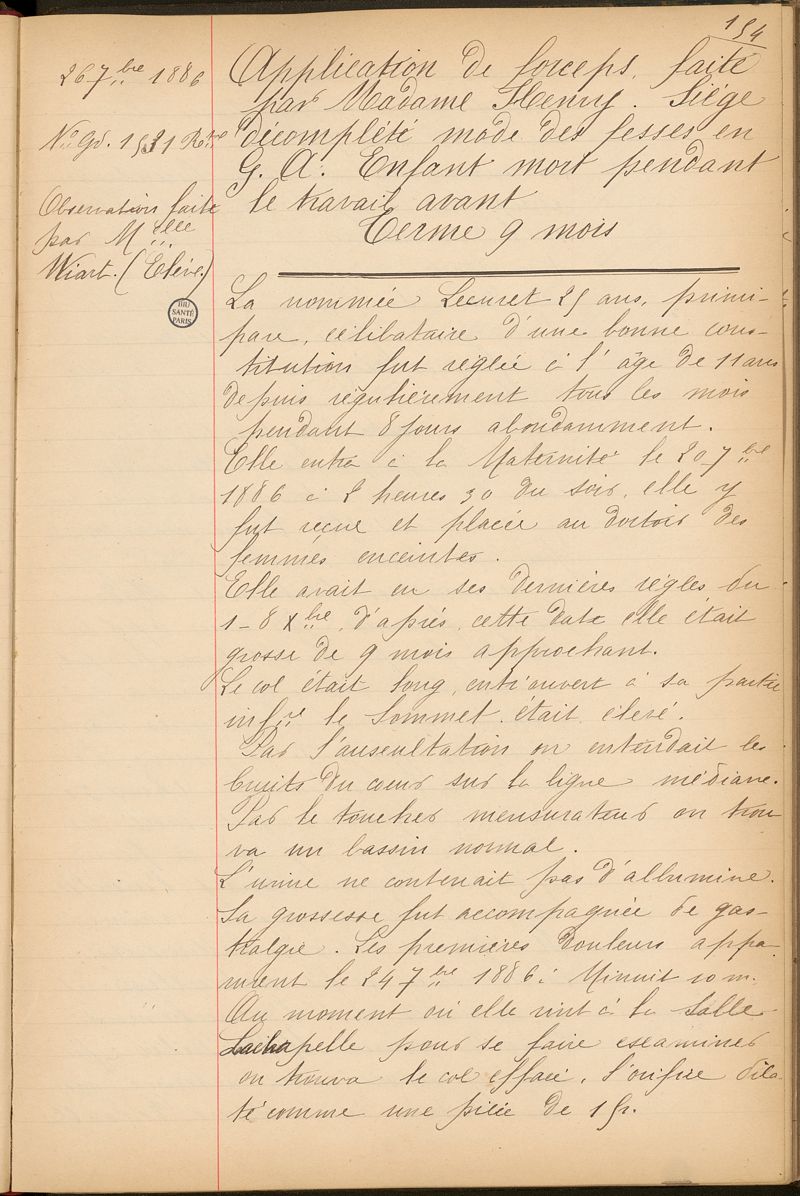 154
26 7bre 1886
No Gd. 1531 Rtre
Observation faite
par Melle
Wiart. (Elève.)
BIU
SANTÉ
PARIS
Application de forceps, faite
par Madame Henry. Siège
décomplété mode des fesses en
G. A. Enfant mort pendant
le travail avant
Terme 9 mois
La nommée Lecuret 25 ans, primi-
pare, célibataire d'une bonne cons-
titution fut réglée à l'âge de 11 ans
depuis régulièrement tous les mois
pendant 8 jours abondamment.
Elle entra à la Maternité le 20 7bre
1886 à 2 heures 30 du soir, elle y
fut reçue et placée au dortoir des
femmes enceintes.
Elle avait eu ses dernières règles du
1-8 Xbre, d'après cette date elle était
grosse de 9 mois approchant.
Le col était long, entr'ouvert à sa partie
infre le sommet était élevé.
Par l'auscultation on entendait les
bruits du coeur sur la ligne médiane.
Par le toucher mensurateur on trou
va un bassin normal.
L'urine ne contenait pas d'albumine.
Sa grossesse fut accompagnée de gas-
tralgie. Les premières douleurs appa-
rurent le 24 7bre 1886 à Minuit 10 m.
Au moment où elle vint à la Salle
Lachapelle pour se faire examiner
on trouva le col effacé, l'orifice dila
té comme une pièce de 1 fr.